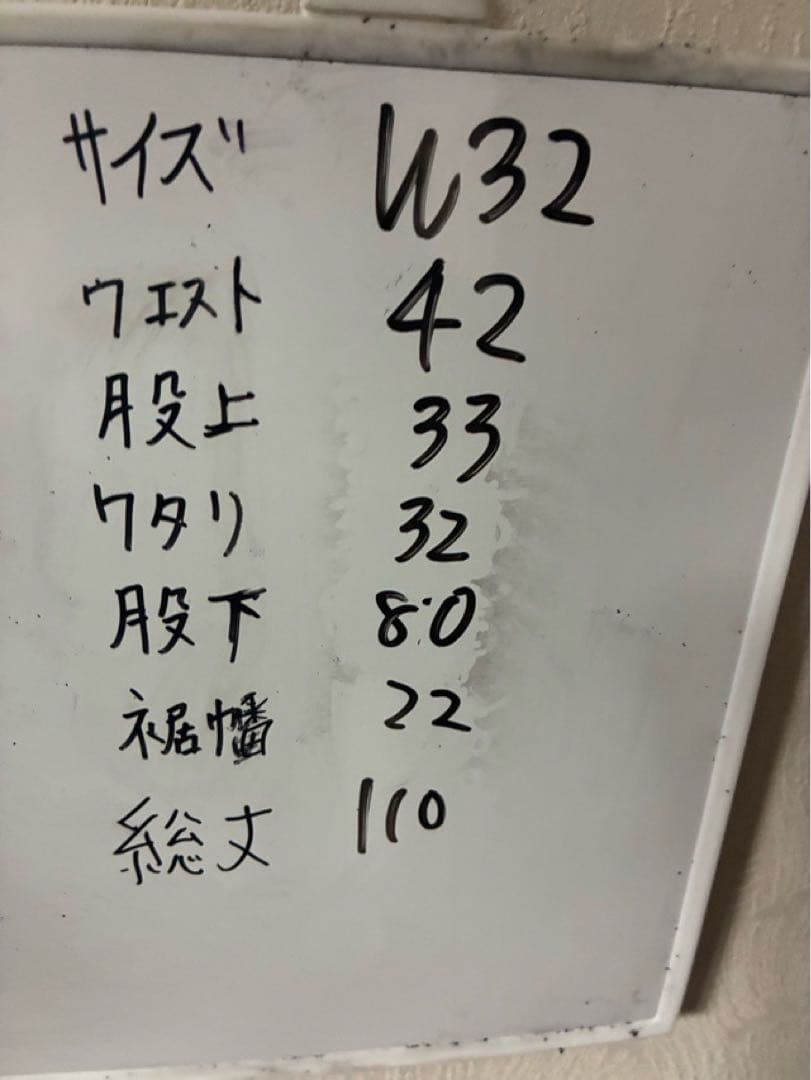 サイズ W32
ウエスト 42
股上 33
ワタリ 32
股下 80
裾幅 22
総丈 110